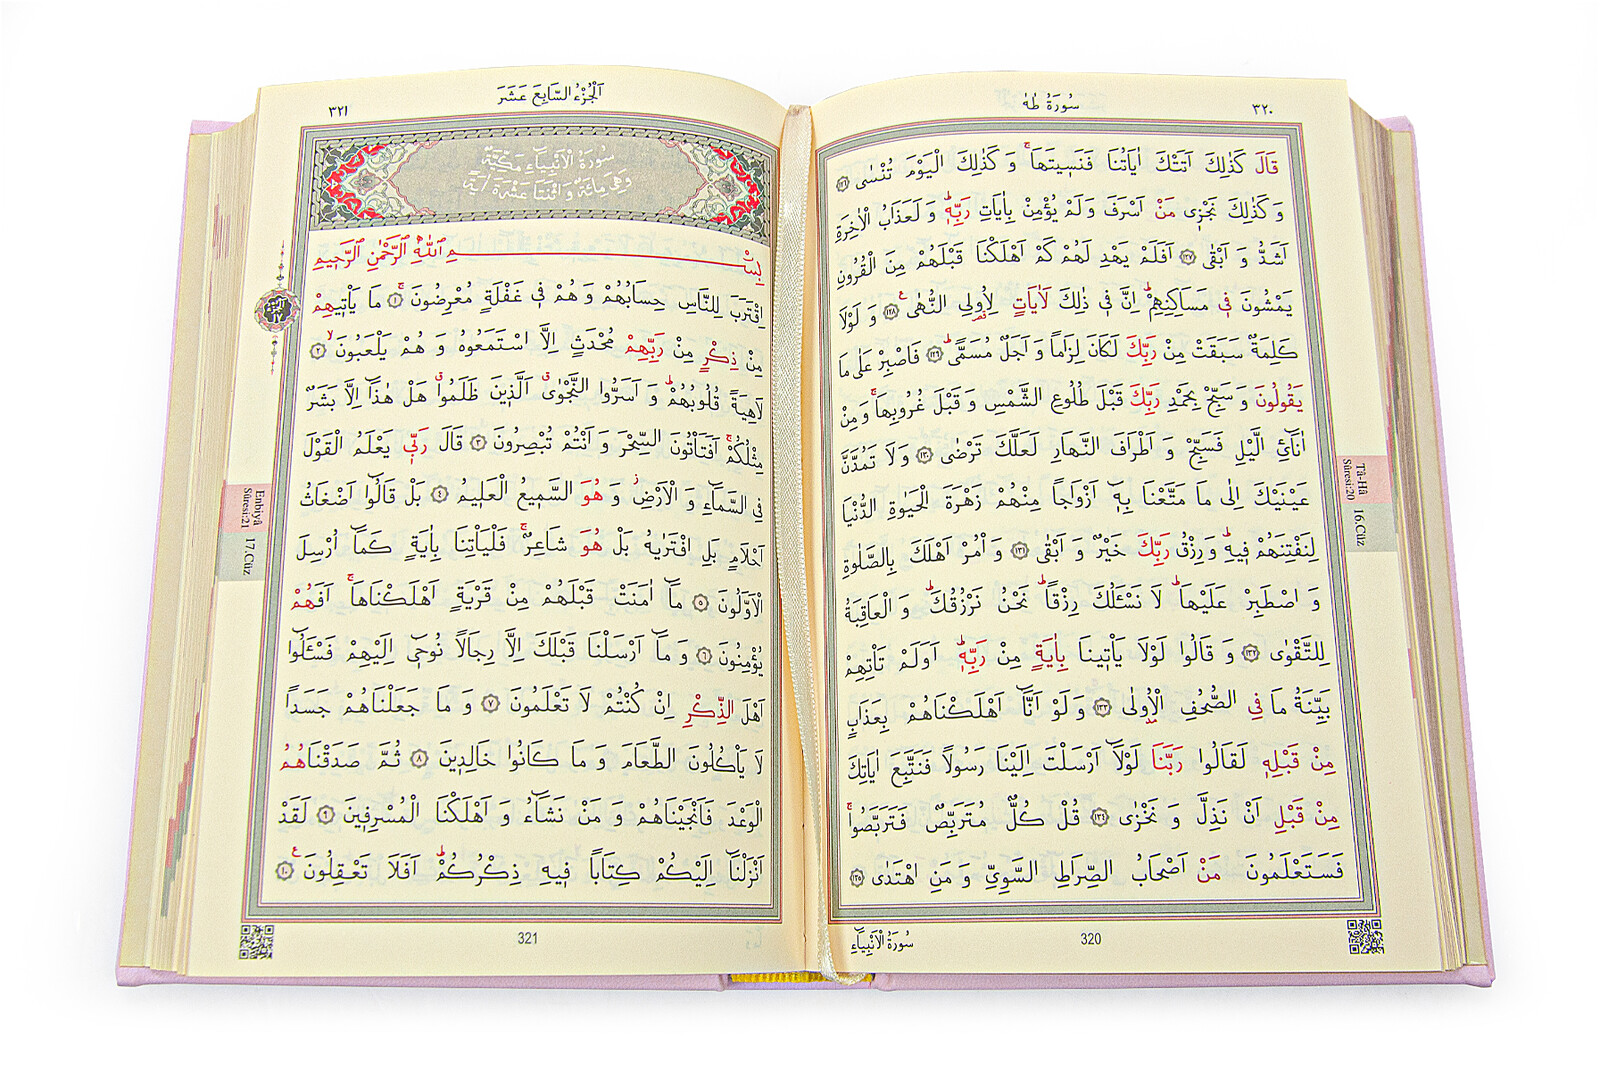 ٣٢٠
سُورَةُ طٰهٰ
قَالَ كَذٰلِكَ اَتَتْكَ اٰيَاتُنَا فَنَسٖيتَهَاۚ وَ كَذٰلِكَ الْيَوْمَ تُنْسٰى ﴿١٢٦﴾
وَ كَذٰلِكَ نَجْزٖى مَنْ اَسْرَفَ وَلَمْ يُؤْمِنْ بِاٰيَاتِ رَبِّهٖؕ وَ لَعَذَابُ الْاٰخِرَةِ
اَشَدُّ وَ اَبْقٰى ﴿١٢٧﴾ اَفَلَمْ يَهْدِ لَهُمْ كَمْ اَهْلَكْنَا قَبْلَهُمْ مِنَ الْقُرُونِ
يَمْشُونَ فٖى مَسَاكِنِهِمْؕ اِنَّ فٖى ذٰلِكَ لَاٰيَاتٍ لِاُولِى النُّهٰى ﴿١٢٨﴾ وَ لَوْلَا
كَلِمَةٌ سَبَقَتْ مِنْ رَبِّكَ لَكَانَ لِزَاماً وَ اَجَلٌ مُسَمًّىؕ ﴿١٢٩﴾ فَاصْبِرْ عَلٰى مَا
يَقُولُونَ وَ سَبِّحْ بِحَمْدِ رَبِّكَ قَبْلَ طُلُوعِ الشَّمْسِ وَ قَبْلَ غُرُوبِهَاۚ وَ مِنْ
اٰنَائِ الَّيْلِ فَسَبِّحْ وَ اَطْرَافَ النَّهَارِ لَعَلَّكَ تَرْضٰى ﴿١٣٠﴾ وَ لَا تَمُدَّنَّ
عَيْنَيْكَ اِلٰى مَا مَتَّعْنَا بِهٖٓ اَزْوَاجاً مِنْهُمْ زَهْرَةَ الْحَيٰوةِ الدُّنْيَا
لِنَفْتِنَهُمْ فٖيهِؕ وَ رِزْقُ رَبِّكَ خَيْرٌ وَ اَبْقٰى ﴿١٣١﴾ وَ اْمُرْ اَهْلَكَ بِالصَّلٰوةِ
وَ اصْطَبِرْ عَلَيْهَاؕ لَا نَسْـَٔلُكَ رِزْقاًؕ نَحْنُ نَرْزُقُكَؕ وَ الْعَاقِبَةُ
لِلتَّقْوٰى ﴿١٣٢﴾ وَ قَالُوا لَوْلَا يَأْتٖينَا بِاٰيَةٍ مِنْ رَبِّهٖؕ اَوَلَمْ تَأْتِهِمْ
بَيِّنَةُ مَا فِى الصُّحُفِ الْاُولٰى ﴿١٣٣﴾ وَ لَوْ اَنَّٓا اَهْلَكْنَاهُمْ بِعَذَابٍ
مِنْ قَبْلِهٖ لَقَالُوا رَبَّنَا لَوْلَٓا اَرْسَلْتَ اِلَيْنَا رَسُولاً فَنَتَّبِعَ اٰيَاتِكَ
مِنْ قَبْلِ اَنْ نَذِلَّ وَ نَخْزٰى ﴿١٣٤﴾ قُلْ كُلٌّ مُتَرَبِّصٌ فَتَرَبَّصُواۚ
فَسَتَعْلَمُونَ مَنْ اَصْحَابُ الصِّرَاطِ السَّوِيِّ وَ مَنِ اهْتَدٰى ﴿١٣٥﴾
Tâ-Hâ
Sûresi:20
16.Cüz
سُورَةُ الْاَنْبِيَٓاءِ
320
اَلْجُزْءُ السَّابِعَ عَشَرَ
٣٢١
سُورَةُ الْاَنْبِيَٓاءِ مَكِّيَّةٌ
وَهِيَ مِائَةٌ وَ اثْنَتَا عَشْرَةَ اٰيَةً
بِسْمِ اللّٰهِ الرَّحْمٰنِ الرَّحٖيمِ
اِقْتَرَبَ لِلنَّاسِ حِسَابُهُمْ وَ هُمْ فٖى غَفْلَةٍ مُعْرِضُونَۚ ﴿١﴾ مَا يَأْتٖيهِمْ
مِنْ ذِكْرٍ مِنْ رَبِّهِمْ مُحْدَثٍ اِلَّا اسْتَمَعُوهُ وَ هُمْ يَلْعَبُونَۙ ﴿٢﴾
لَاهِيَةً قُلُوبُهُمْؕ وَ اَسَرُّوا النَّجْوٰىۗ اَلَّذٖينَ ظَلَمُواۗ هَلْ هٰذَٓا اِلَّا بَشَرٌ
مِثْلُكُمْۚ اَفَتَأْتُونَ السِّحْرَ وَ اَنْتُمْ تُبْصِرُونَ ﴿٣﴾ قَالَ رَبّٖى يَعْلَمُ الْقَوْلَ
فِى السَّمَٓاءِ وَ الْاَرْضِؗ وَ هُوَ السَّمٖيعُ الْعَلٖيمُ ﴿٤﴾ بَلْ قَالُٓوا اَضْغَاثُ
اَحْلَامٍ بَلِ افْتَرٰيهُ بَلْ هُوَ شَاعِرٌۚ فَلْيَأْتِنَا بِاٰيَةٍ كَمَٓا اُرْسِلَ
الْاَوَّلُونَ ﴿٥﴾ مَٓا اٰمَنَتْ قَبْلَهُمْ مِنْ قَرْيَةٍ اَهْلَكْنَاهَاۚ اَفَهُمْ
يُؤْمِنُونَ ﴿٦﴾ وَ مَٓا اَرْسَلْنَا قَبْلَكَ اِلَّا رِجَالاً نُوحٖٓى اِلَيْهِمْ فَسْـَٔلُٓوا
اَهْلَ الذِّكْرِ اِنْ كُنْتُمْ لَا تَعْلَمُونَ ﴿٧﴾ وَ مَا جَعَلْنَاهُمْ جَسَداً
لَا يَأْكُلُونَ الطَّعَامَ وَ مَا كَانُوا خَالِدٖينَ ﴿٨﴾ ثُمَّ صَدَقْنَاهُمُ
الْوَعْدَ فَاَنْجَيْنَاهُمْ وَ مَنْ نَشَٓاءُ وَ اَهْلَكْنَا الْمُسْرِفٖينَ ﴿٩﴾ لَقَدْ
اَنْزَلْنَٓا اِلَيْكُمْ كِتَاباً فٖيهِ ذِكْرُكُمْؕ اَفَلَا تَعْقِلُونَ ﴿١٠﴾
Enbiyâ
Sûresi:21
17.Cüz
321